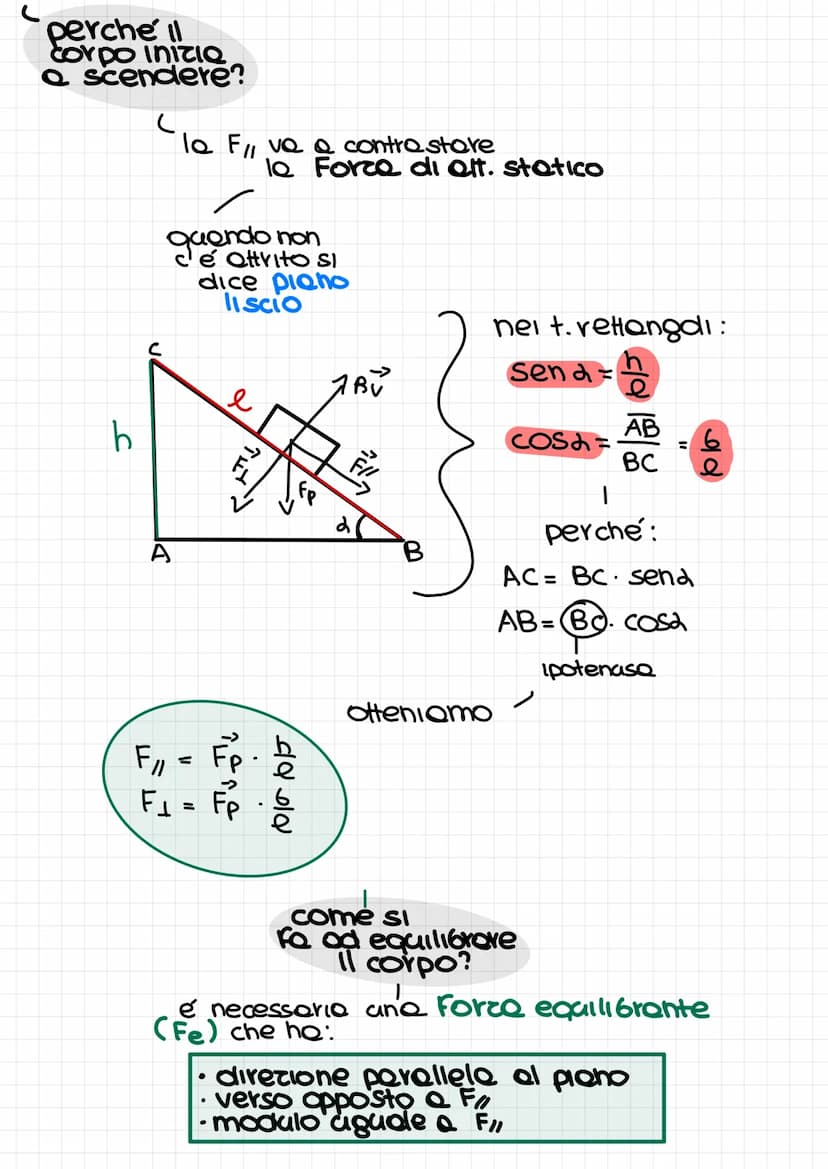 perché il
corpo inizia
a scendere?
la F// va a contrastare
la Forza di att. statico
quando non
c'é attrito si
dice piano
liscio
nei t. rettangoli:
sen α = h/l
cos α = AB/BC = b/l
perché:
AC = BC · sen α
AB = BC · cos α
ipotenusa
C
l
h
RV
F⊥
F//
Fp
α
A
B
otteniamo
F// = Fp · h/l
F⊥ = Fp · b/l
come si
fa ad equilibrare
il corpo?
é necessaria una Forza equilibrante
(Fe) che ha:
· direzione parallela al piano
· verso opposto a F//
· modulo uguale a F//